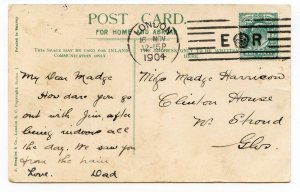 POST CARD.
FOR HOME AND ABROAD
THIS SPACE MAY BE USED FOR INLAND
COMMUNICATION ONLY
LONDON
16 NOV
1904
E R
My Dear Madge
How dare you go
out with Jim after
being indoors all
the day. We saw you
from the train
Love. Dad
Miss Madge Harrison
Clinton House
Nr Stroud
Glos.